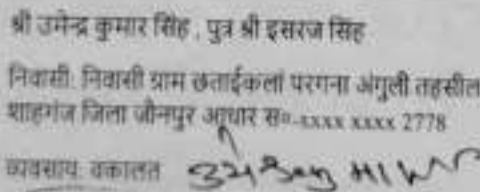 श्री उमेन्द्र कुमार सिंह , पुत्र श्री इसराज सिंह
निवासी: निवासी ग्राम छताईकलां परगना अंगुली तहसील
शाहगंज जिला जौनपुर आधार स०-xxxx xxxx 2778
व्यवसाय: वकालत